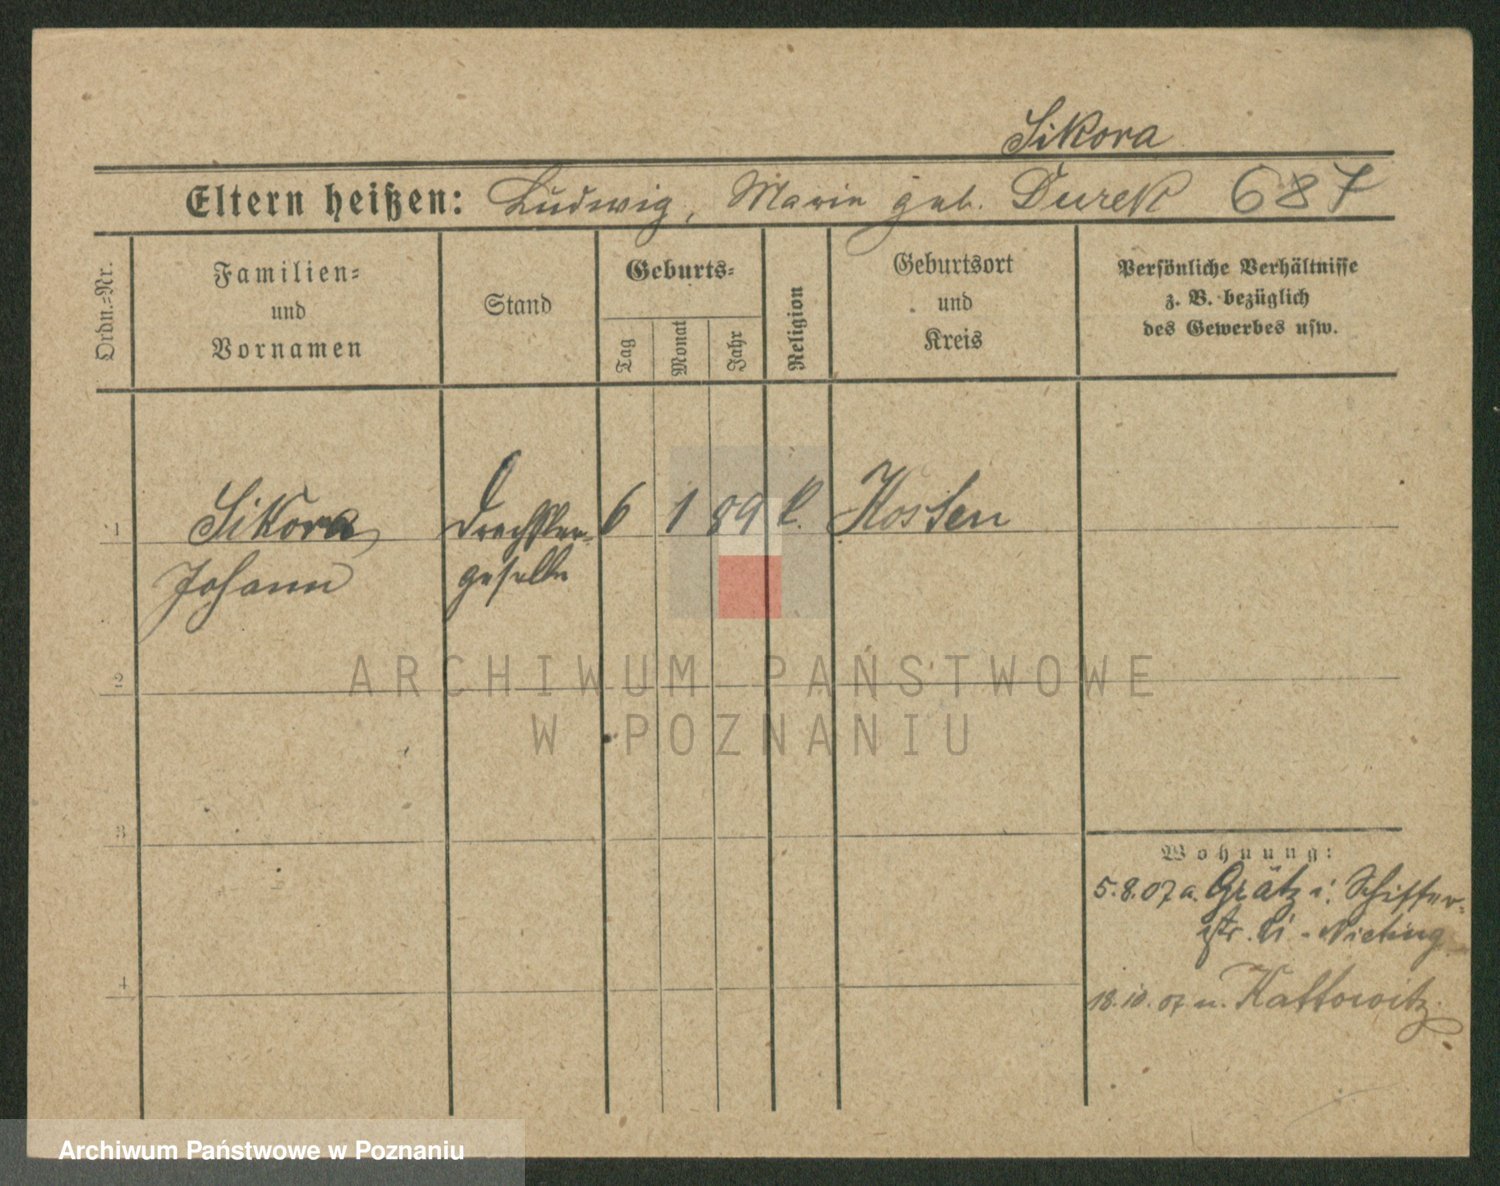 Sikora
Eltern heißen: Ludwig, Marie geb. Durek 687
Ordn.-Nr.
Familien-
und
Vornamen
Stand
Geburts-
Tag
Monat
Jahr
Religion
Geburtsort
und
Kreis
Persönliche Verhältnisse
z. B. bezüglich
des Gewerbes usw.
1 Sikora Drechsler- 6 1 89 k. Kosten
Johann geselle
2
3
4
Wohnung:
5.8.07 a. Grätz i. Schiffer-
str. bei
18.10.07 n. Kattowitz
ARCHIWUM PAŃSTWOWE
W POZNANIU
Archiwum Państwowe w Poznaniu